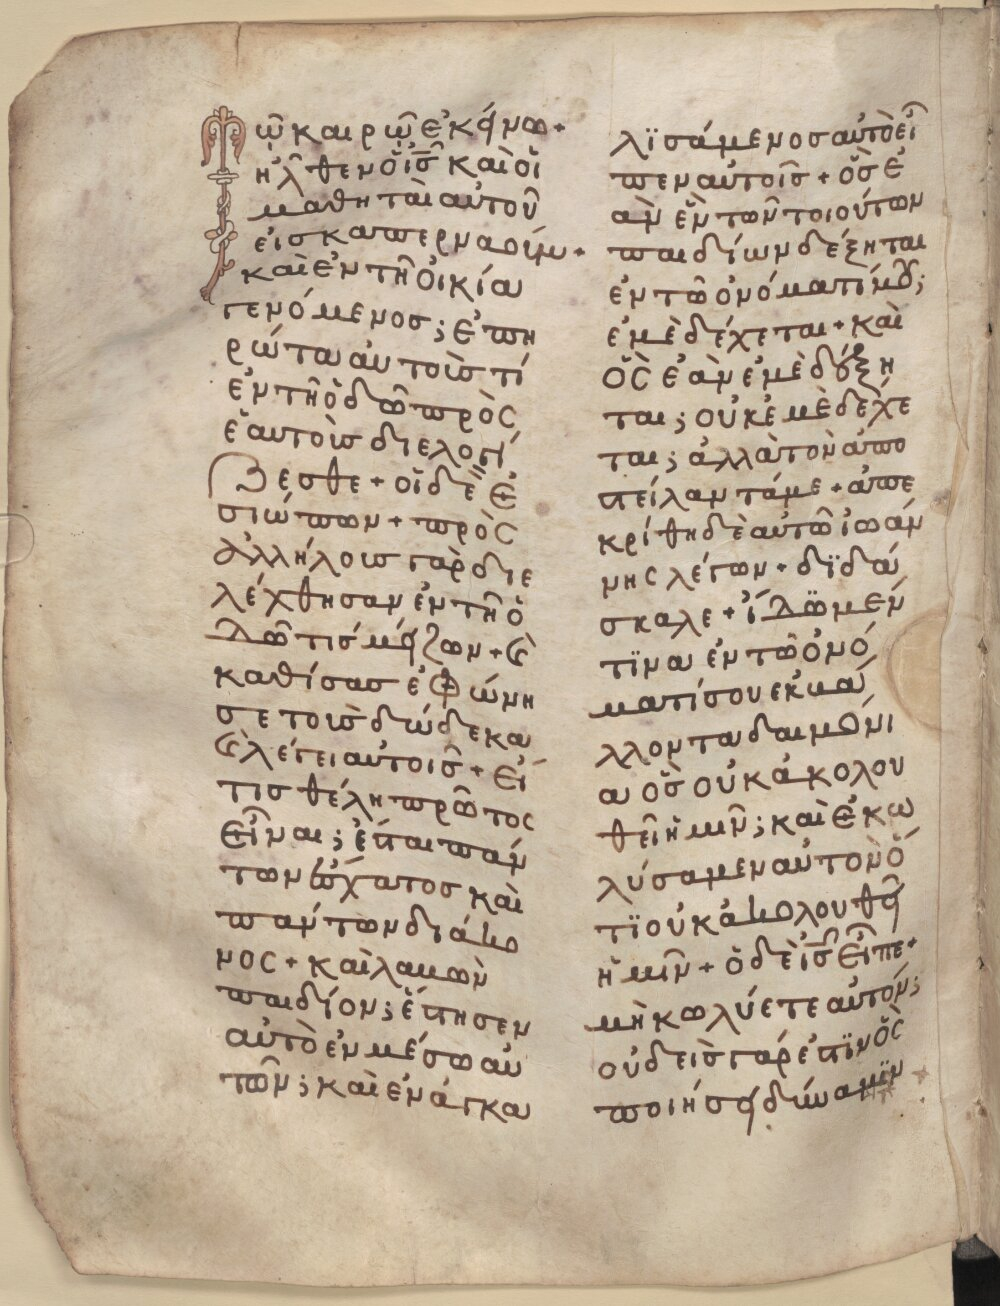 Τῷ καιρῷ ἐκείνω +
ἦλθεν ὁ ις καὶ οἱ
μαθηταὶ αὐτοῦ
εἰς καπερναούμ +
καὶ ἐν τῆ οἰκία
γενόμενος ; ἐπη
ρώτα αὐτοὺς τί
ἐν τῆ ὁδῶ πρὸς
ἑαυτοὺς διελογί
ζεσθε + οἱ δὲ ἐ
σιώπων + πρὸς
ἀλλήλους γὰρ διε
λέχθησαν ἐν τῆ ὁ
δῶ τίς μείζων + ϗ
καθίσας ἐφώνη
σε τοὺς δώδεκα
ϗ λέγει αὐτοῖς + εἴ
τις θέλη πρῶτος
εἶναι ; ἔσται πάν
των ἔσχατος καὶ
πάντων διάκο
νος + καὶ λαβὼν
παιδίον ; ἔστησεν
αὐτὸ ἐν μέσω αὐ
τῶν ; καὶ ἐναγκα
λϊσάμενος αὐτὸ εἶ
πεν αὐτοῖς + ὃς ἐ
ὰν ἓν τῶν τοιούτων
παιδίων δέξηται
ἐν τῶ ὀνόματί μου ;
ἐμὲ δέχεται + καὶ
ὃς ἐὰν ἐμὲ δέξη
ται ; οὐκ ἐμὲ δέχε
ται ; ἀλλὰ τὸν ἀπο
στείλαντά με + ἀπε
κρίθη δὲ αὐτῶ ἰωάν
νης λέγων + δϊδά
σκαλε + ἴδωμέν
τϊνα ἐν τῶ ὀνό
ματί σου ἐκβά
λλοντα δαιμόνι
α ὃς οὐκ ἀκολου
θεῖ ἡμῖν ; καὶ ἐκω
λύσαμεν αὐτὸν ὅ
τϊ οὐκ ἀκολουθεῖ
ἡμῖν + ὁ δὲ ις εἶπε +
μὴ κωλύετε αὐτόν ;
οὐδεὶς γάρ ἐστϊν ὃς
ποιήσει δύναμϊν